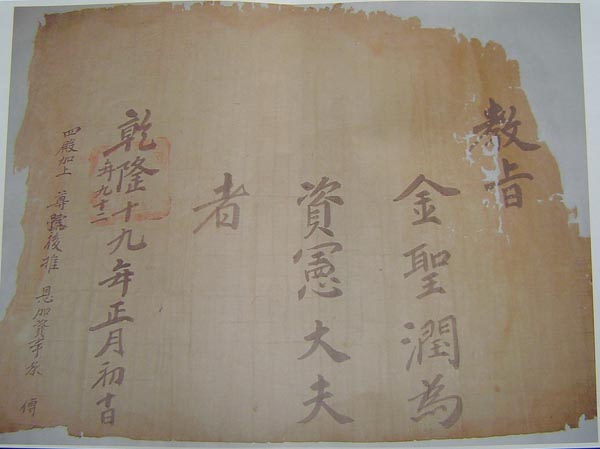 教旨
金聖潤為
資憲大夫
者
乾隆十九年正月初十日
年九十二
四殿加上 尊號後推 恩加資事承 傳